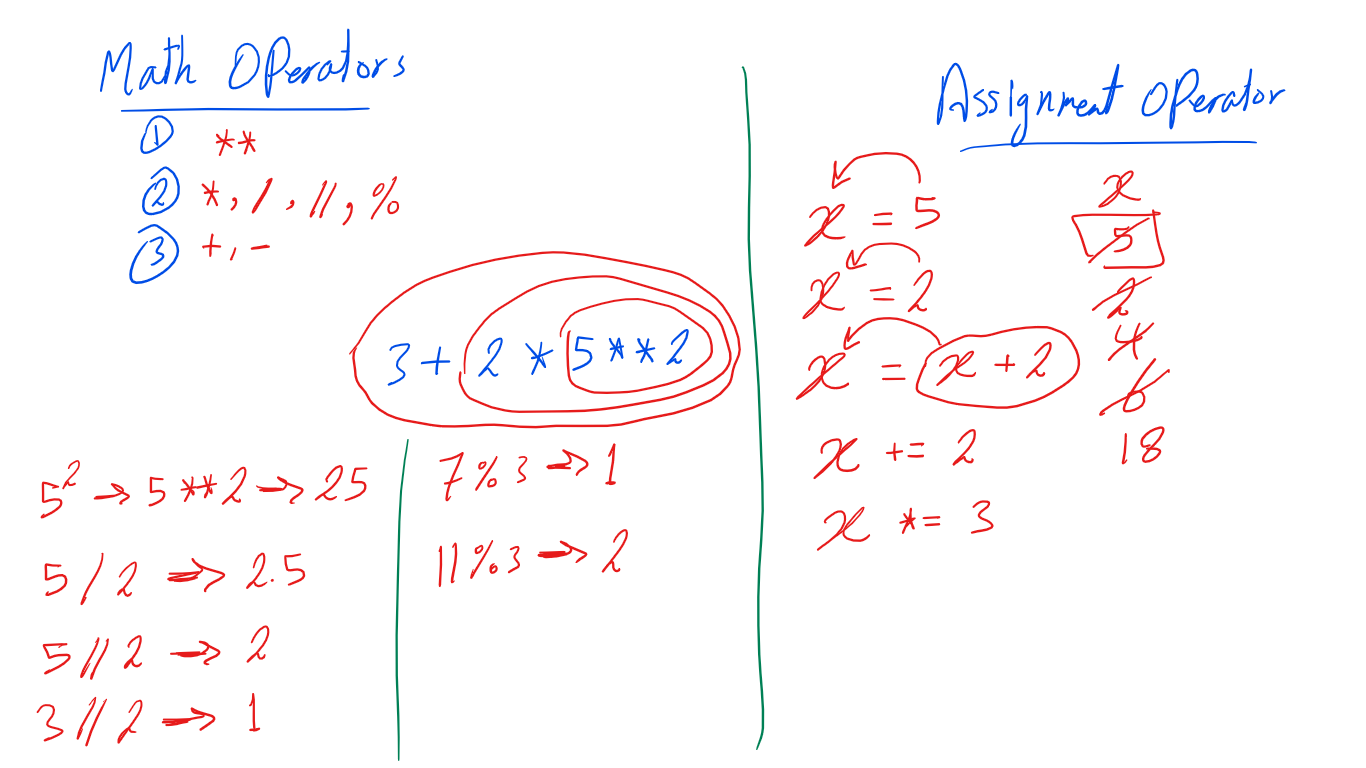 Math Operators
① **
② *, /, //, %
③ +, -
3 + 2 * 5**2
5² → 5**2 → 25
5 / 2 → 2.5
5 // 2 → 2
3 // 2 → 1
7 % 3 → 1
11 % 3 → 2
Assignment Operator
x = 5
x = 2
x = x + 2
x += 2
x *= 3
x
5
2
4
6
18